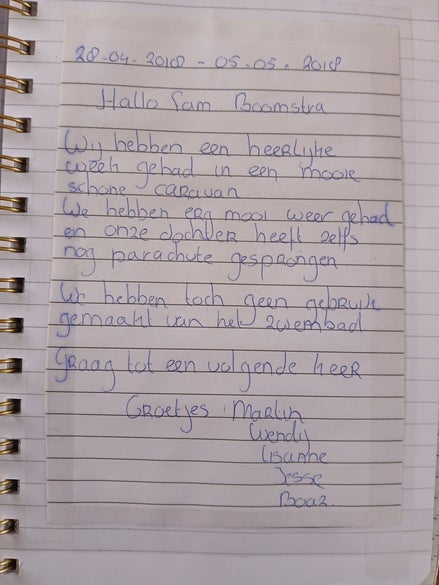 28.04.2018 - 05.05.2018
Hallo fam. Boomstra
Wij hebben een heerlijke
week gehad in een mooie
schone caravan.
We hebben erg mooi weer gehad
en onze dochter heeft zelfs
nog parachute gesprongen
We hebben toch geen gebruik
gemaakt van het zwembad.
Graag tot een volgende keer
Groetjes Martin
Wendy
Lisanne
Jesse
Boaz.